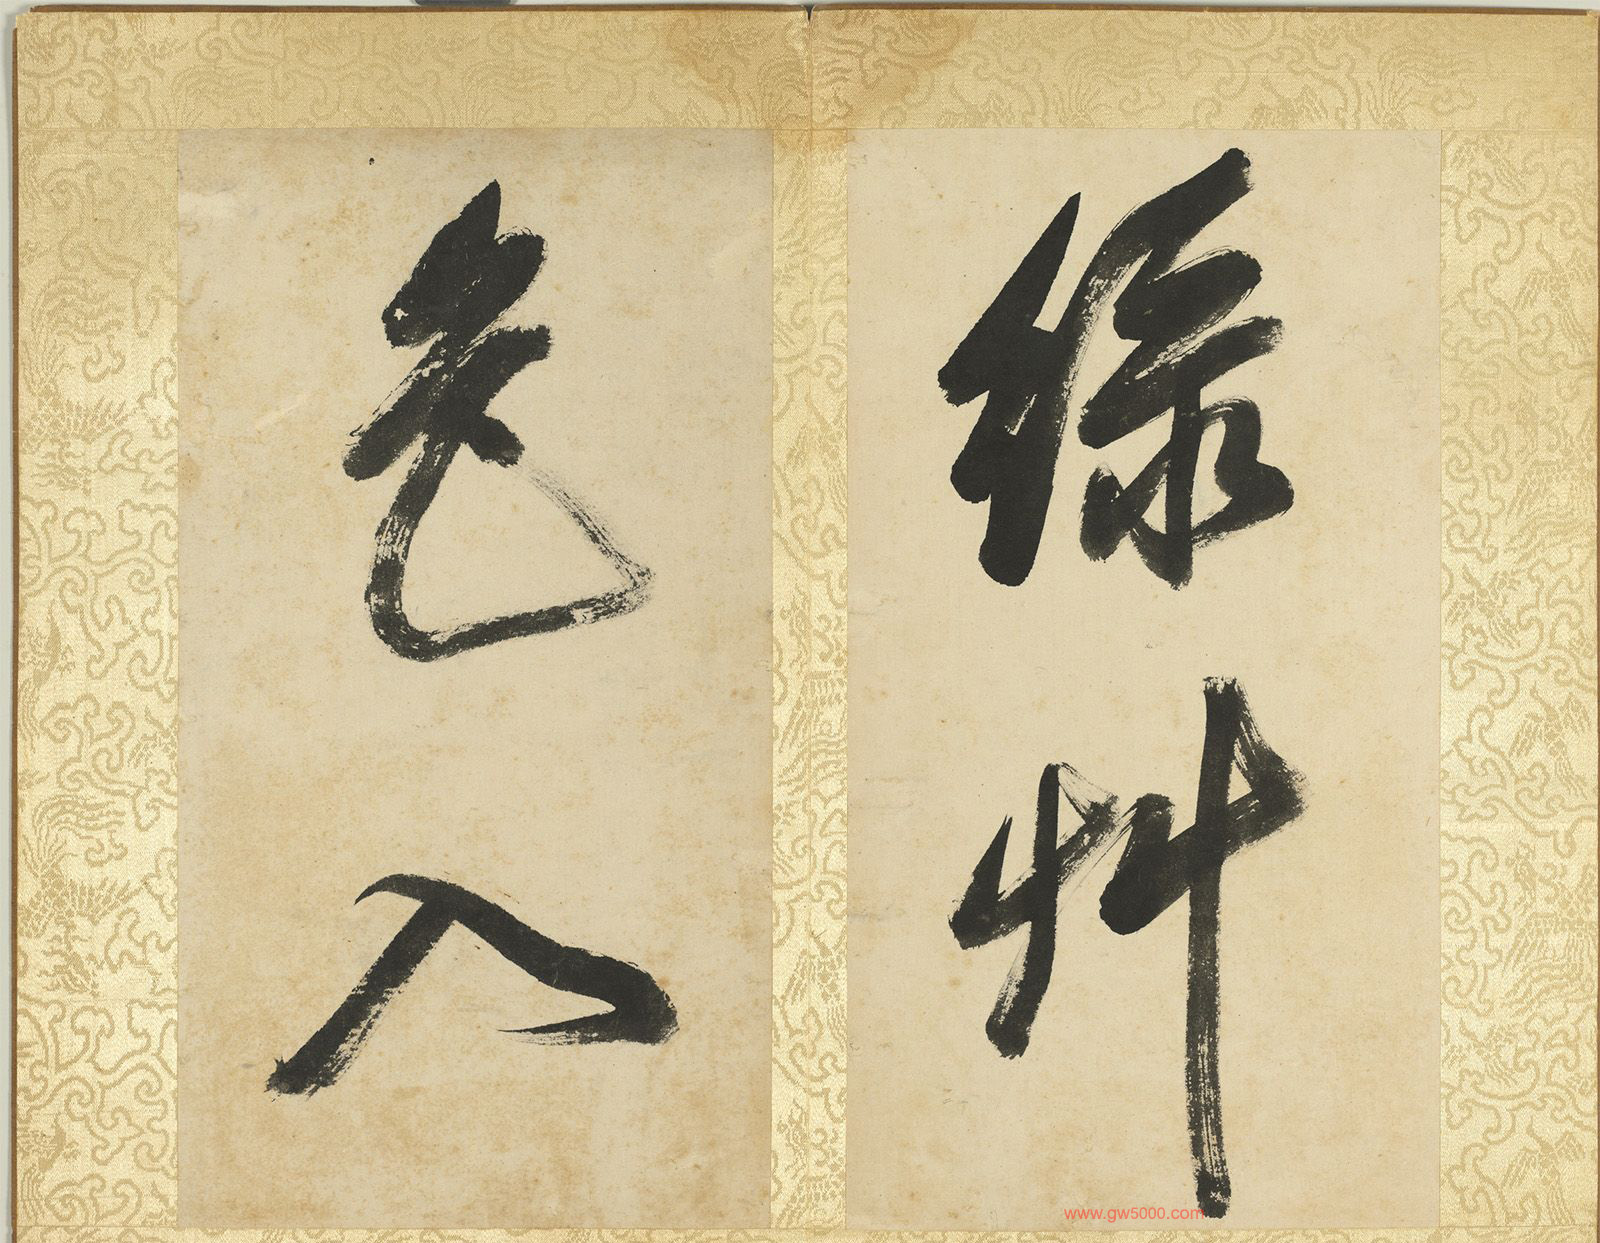 綠艸
色入
www.gw5000.com